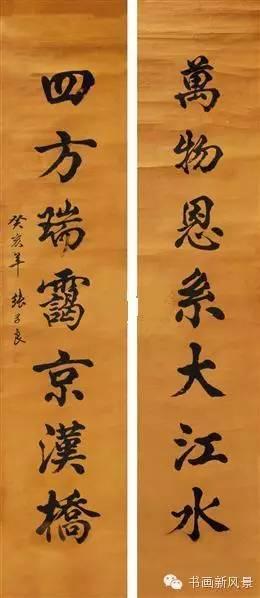 萬物恩系大江水
四方瑞靄京漢橋
癸亥年 張子良
书画新风景